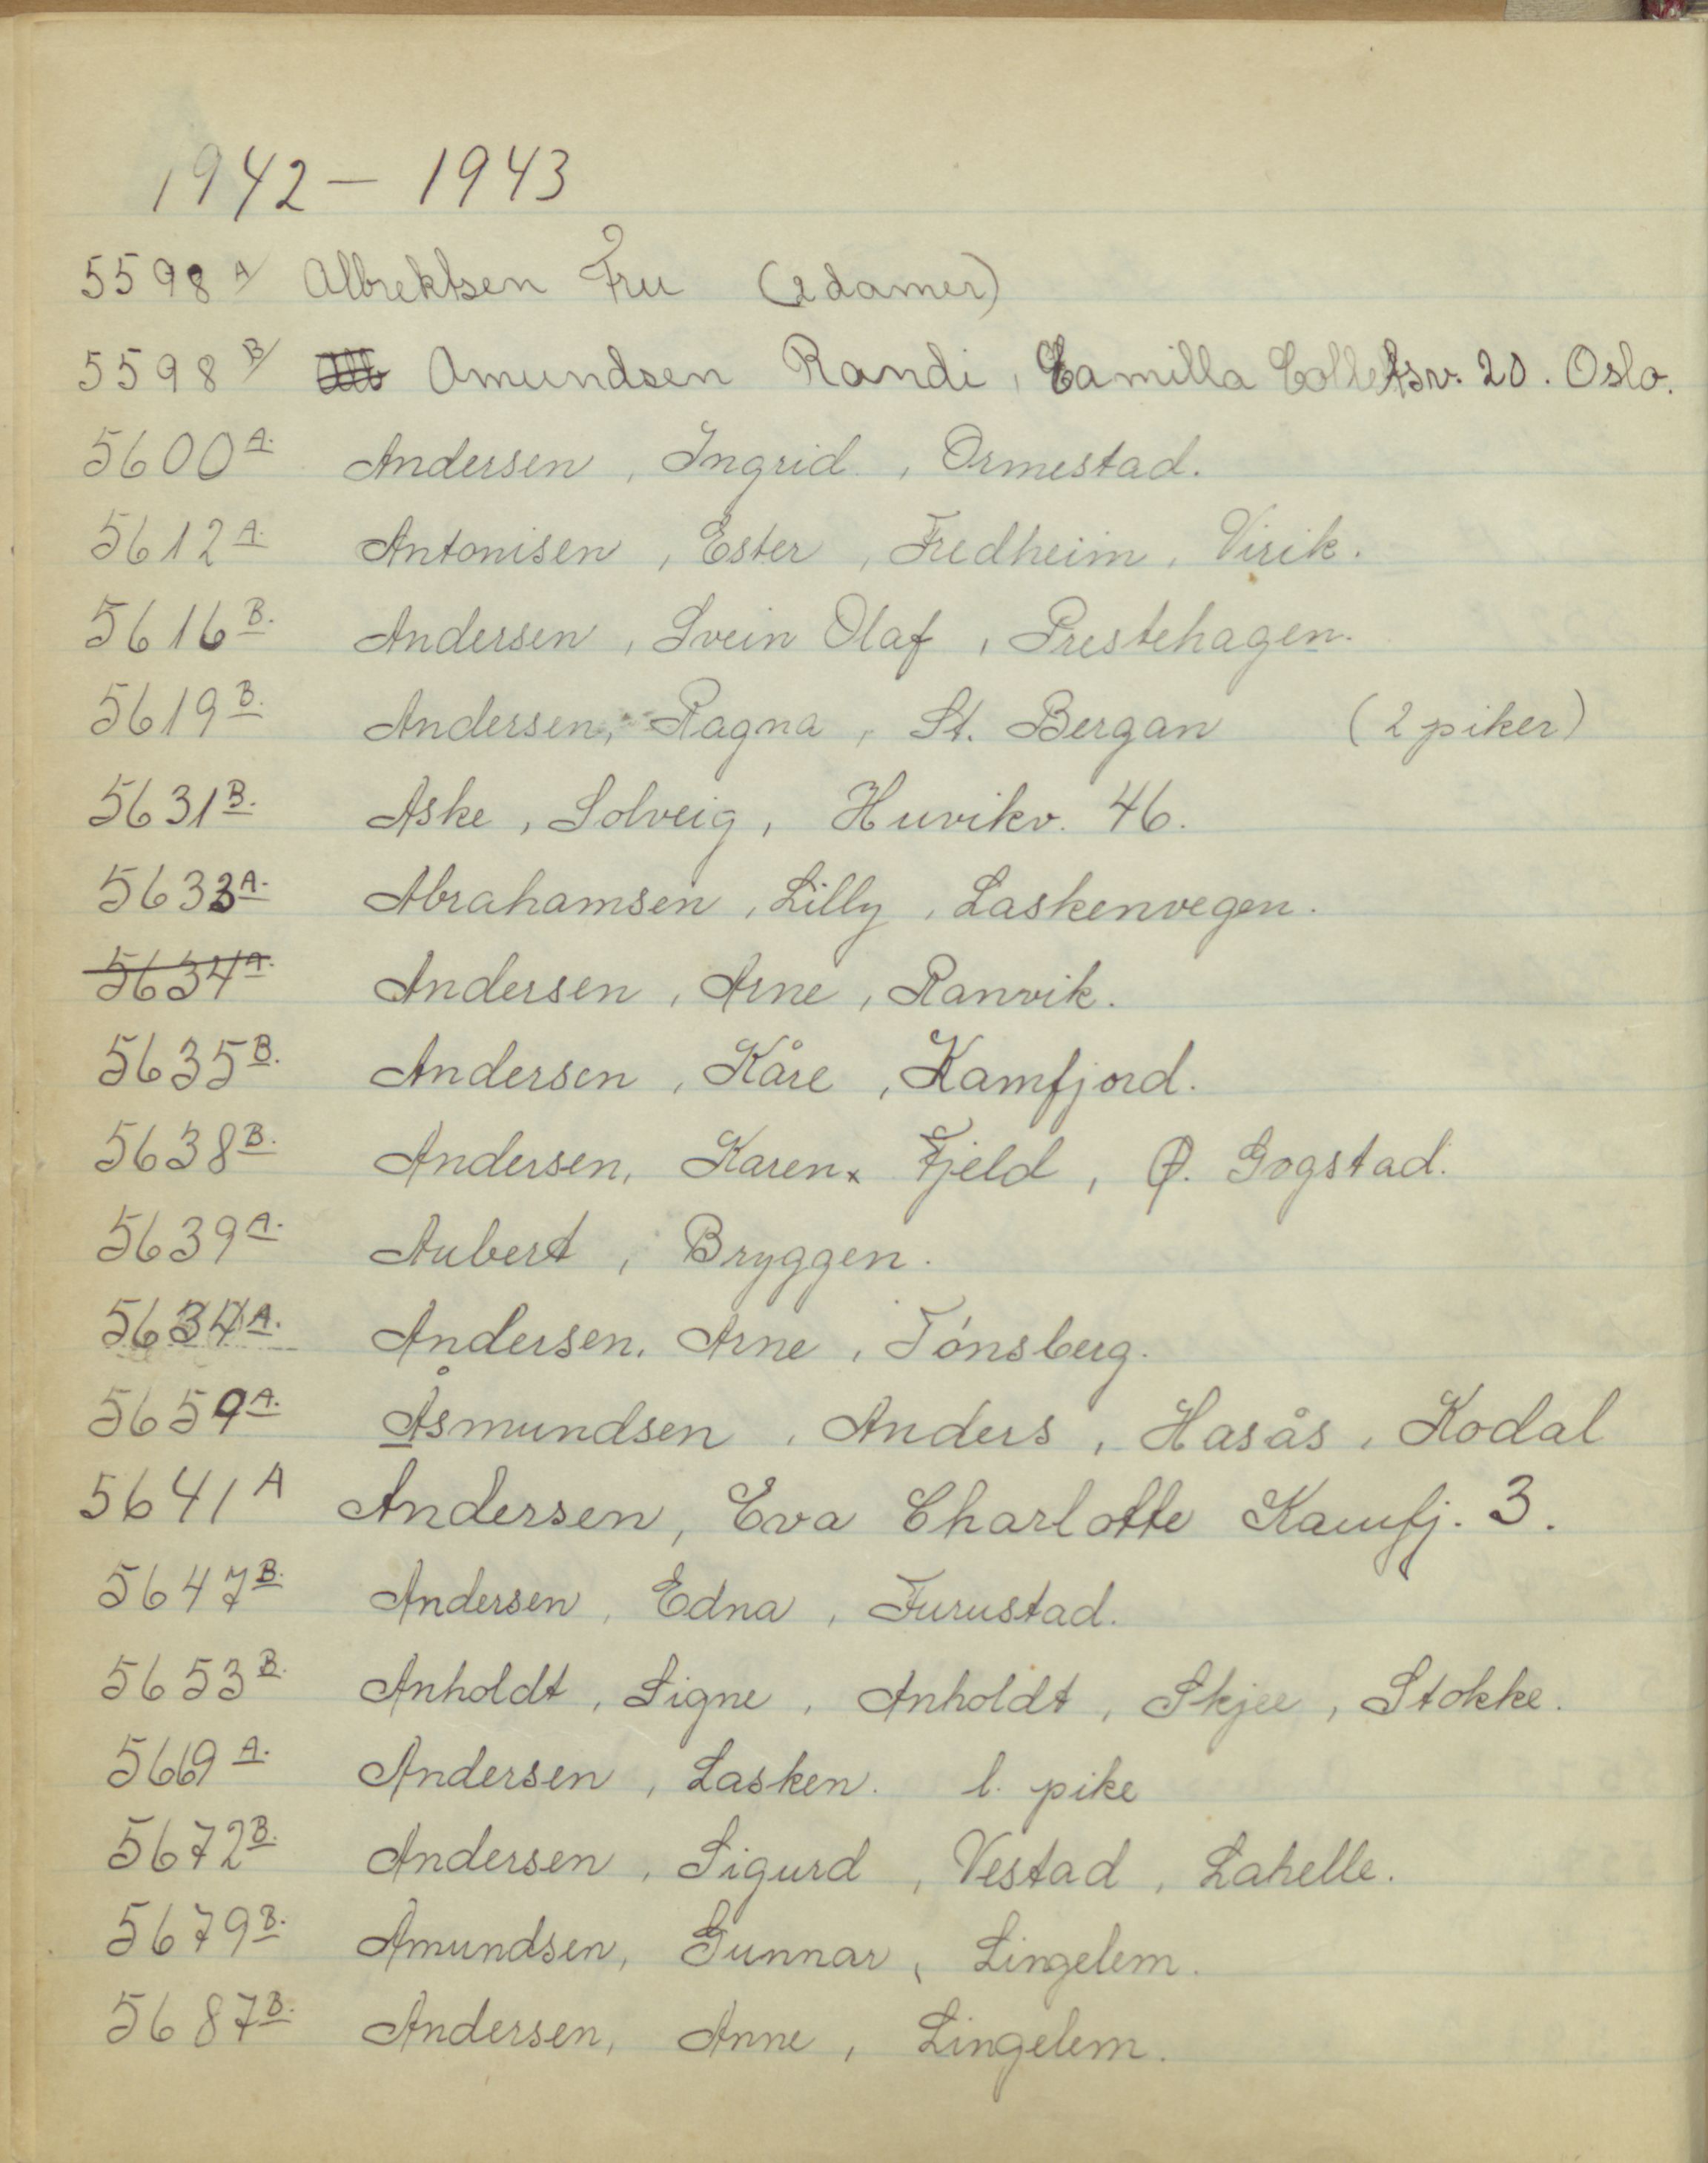 1942 – 1943
5598 A/ Albrektsen Fru (2 damer)
5598 B/ Amundsen Randi, Camilla Colletsv. 20. Oslo.
5600 A. Andersen, Ingrid, Ormestad.
5612 A. Antonisen, Ester, Fredheim, Virik.
5616 B. Andersen, Svein Olaf, Prestehagen.
5619 B. Andersen, Ragna, St. Bergan (2 piker)
5631 B. Aske, Solveig, Huvikv. 46.
5633 A. Abrahamsen, Lilly, Laskenvegen.
5634 A. Andersen, Arne, Ranvik.
5635 B. Andersen, Kåre, Kamfjord.
5638 B. Andersen, Karen, Fjeld, Ø. Gogstad.
5639 A. Aubert, Bryggen.
5634 A. Andersen, Arne, Tønsberg.
5659 A. Åsmundsen, Anders, Hasås, Kodal
5641 A Andersen, Eva Charlotte Kamfj. 3.
5647 B. Andersen, Edna, Furustad.
5653 B. Anholdt, Signe, Anholdt, Skjee, Stokke.
5669 A. Andersen, Lasken. l. pike
5672 B. Andersen, Sigurd, Vestad, Lahelle.
5679 B. Amundsen, Gunnar, Lingelem.
5687 B. Andersen, Anne, Lingelem.